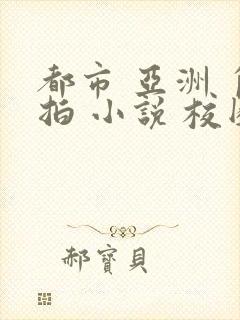 都市 亞洲
拍 小說 校
郝寶貝